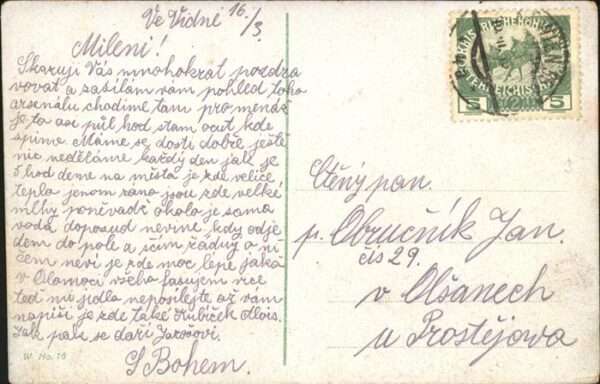 Ve Vídni 16/3
Milení!
Skazuji Vás mnohokrát pozdra
vovat a zasílám vám pohled toho
arsenálu chodíme tam pro menáž
je to asi půl hod stam ocit kde
spíme. Máme se dosti dobře ještě
nic neděláme každý den jak je
5 hod deme na místo je zde velice
teplo jenom ráno jsou zde velké
mlhy poněvadž okolo je sama
voda doposud nevíme kdy odje
dem do pole a s čím žádný o ni
čem neví je zde moc lépe jak á
v Olomoci všeho fasujem více
teď nic jídla neposílejte až vám
napíši je zde také Kubíček Alois.
Jak pak se daří Jarošovi.
S Bohem.
W. No. 16
5 5
WIEN
Ctěný pan.
p. Obručník Jan.
čis 29.
v Olšanech
u Prostějova